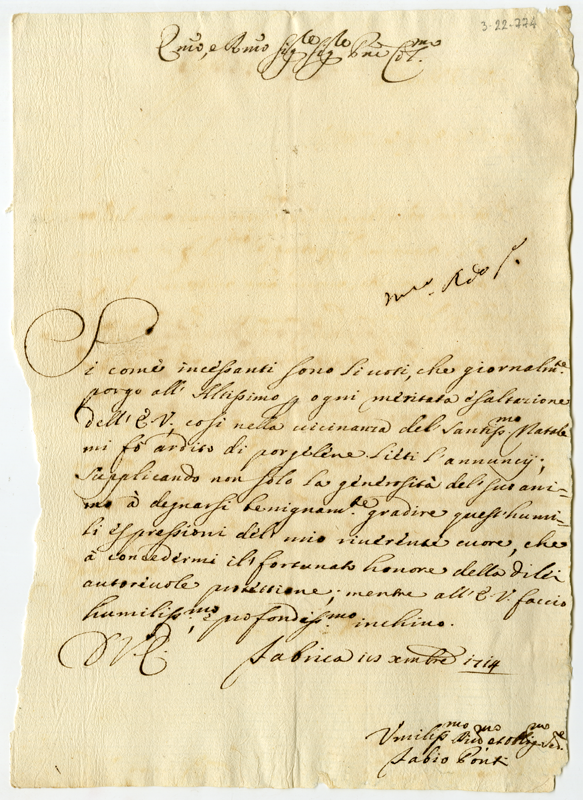 3-22-774
Emõ, e Rmõ Sig.re Sig.re Pnẽ Col.mo
m.to Rdo
Si come incessanti sono li voti, che giornalm.te
porgo all' Altissimo p ogni meritata esaltazione
dell' E.V. cosi nella vicinanza del Santiss.mo Natale
mi fò ardito di porgelene lieti l'annuncij;
supplicando non solo la generosità del suo ani=
mo à degnarsi benignam.te gradire quest' humi=
li espressioni del mio riverente cuore, che
à concedermi il fortunato honore della di lei
autorevole protettione; mentre all' E.V. faccio
humiliss.mo, e profondiss.mo inchino.
D.V.E. Fabrica xmbre 1714
Umiliss.mo
Fabio Ponti